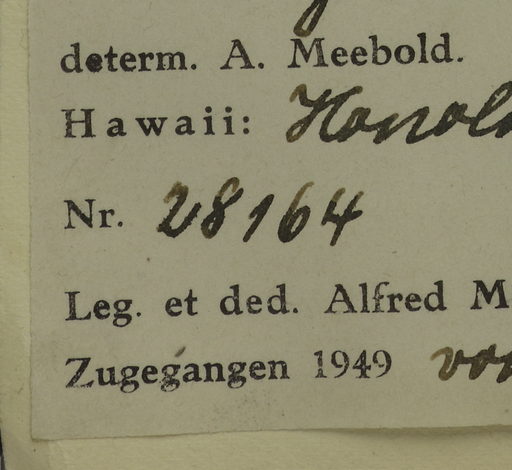 determ. A. Meebold.
Hawaii: Honol
Nr. 28164
Leg. et ded. Alfred M
Zugegangen 1949 von